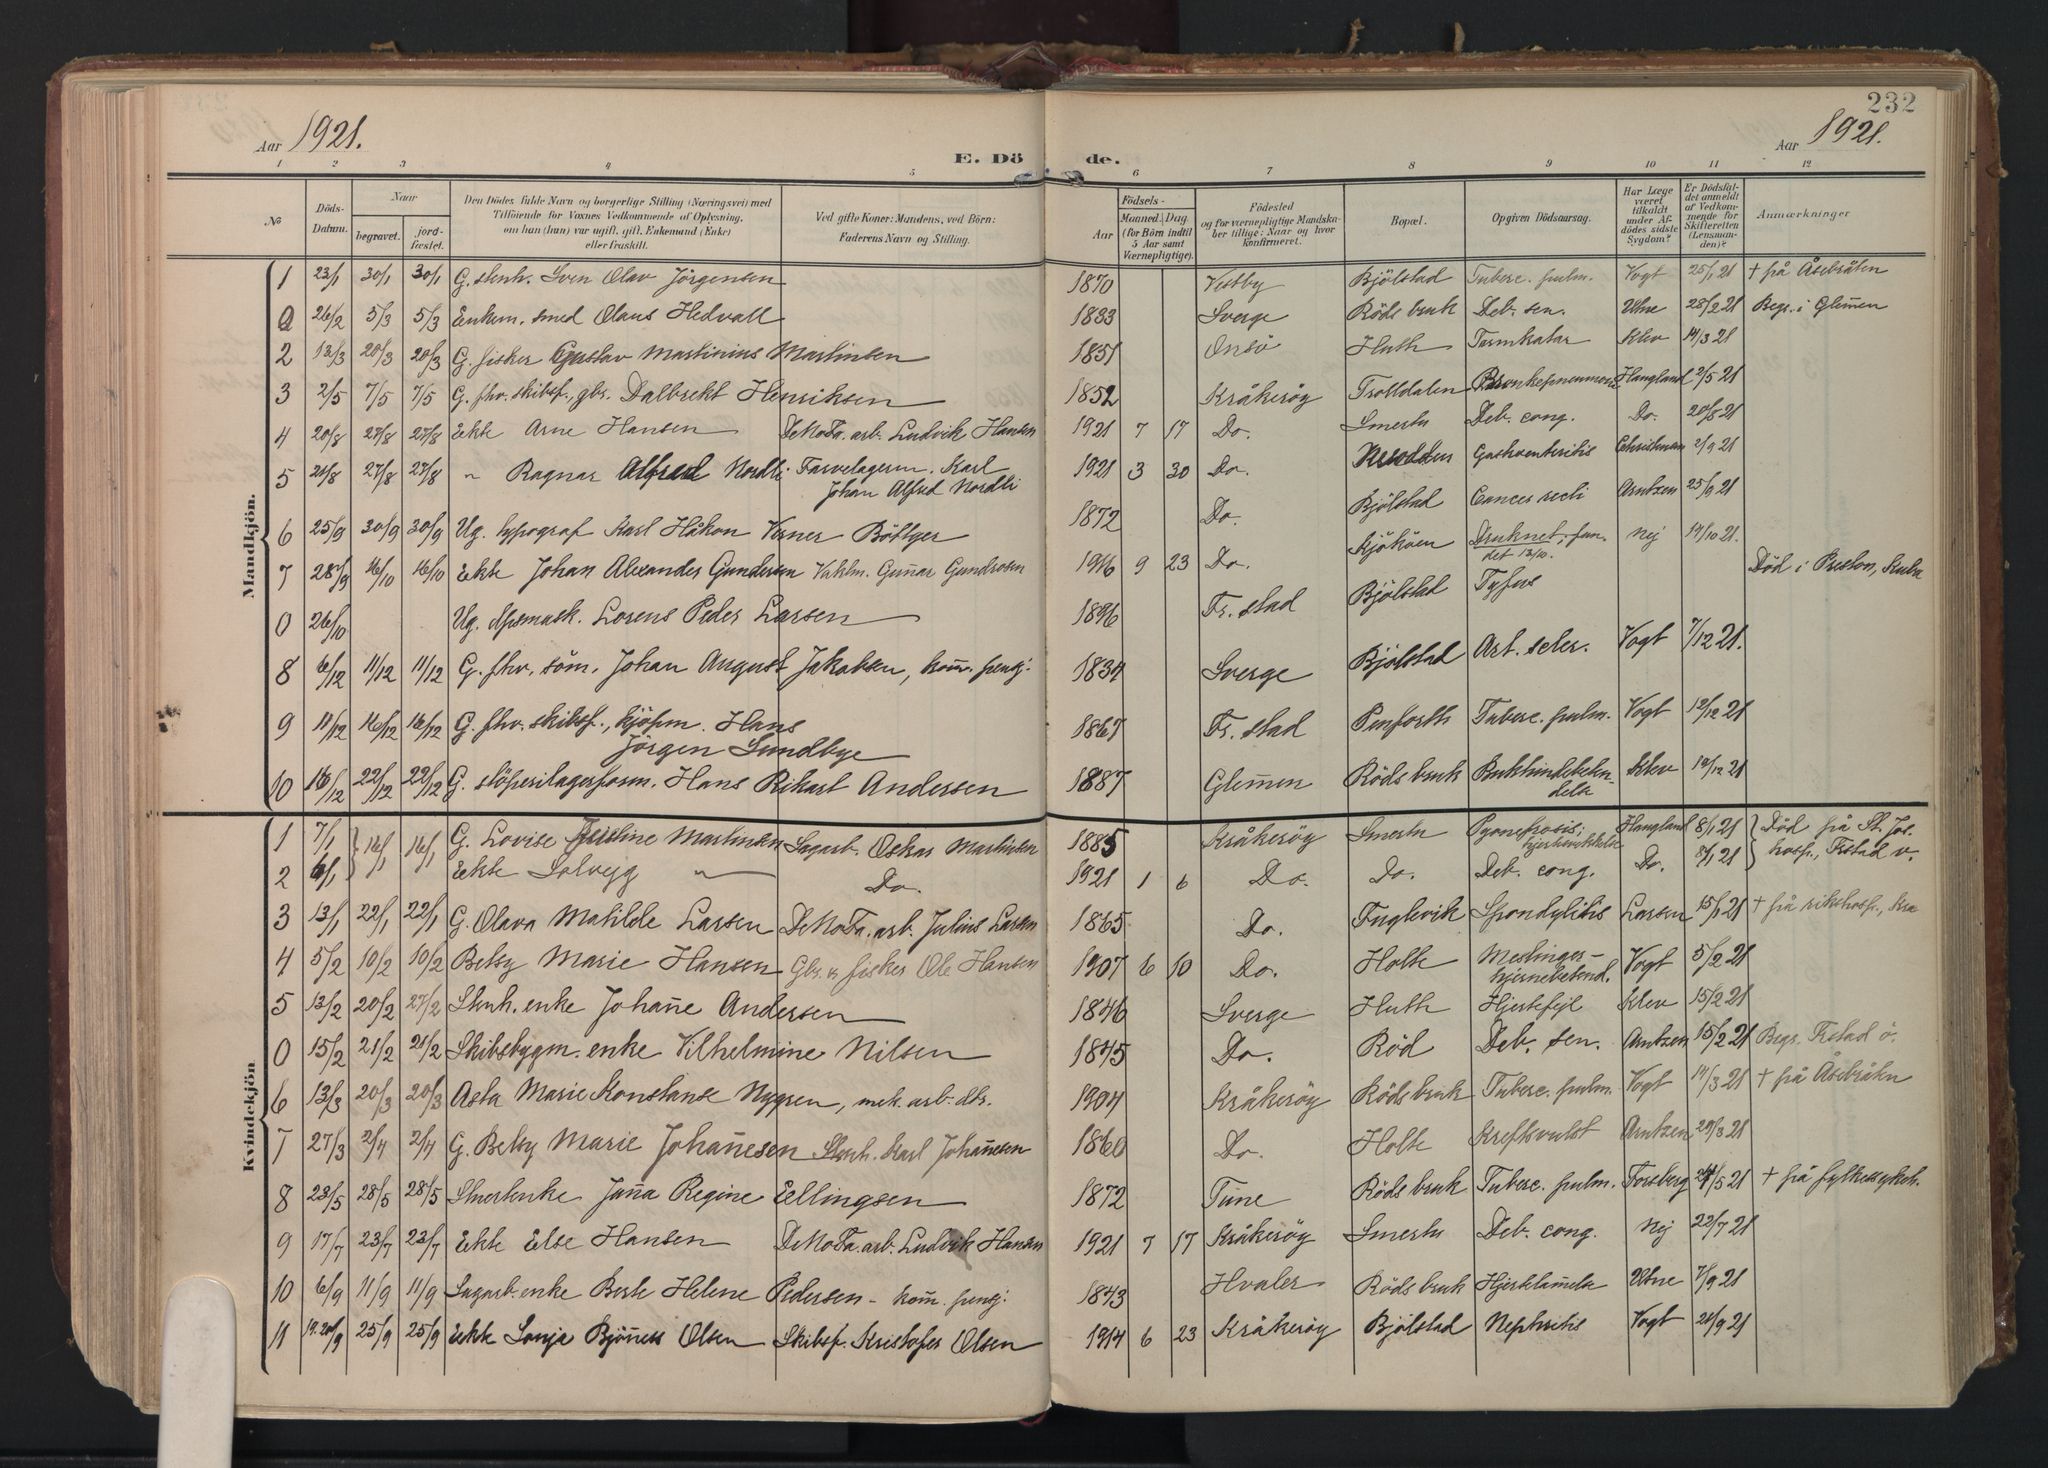 232
Aar 1921.
E. Dö de.
Aar 1921.
1 2 3 4 5 6 7 8 9 10 11 12
No
Döds-Datum.
Naar
begravet.
jord-fæstet.
Den Dödes fulde Navn og borgerlige Stilling (Næringsvei) med
Tilföiende for Voxnes Vedkommende af Oplysning,
om han (hun) var ugift, gift, Enkemand (Enke)
eller fraskilt.
Ved gifte Koner: Mandens, ved Börn:
Faderens Navn og Stilling.
Födsels-
Aar
Maaned. Dag.
(for Börn indtil
5 Aar samt
Værnepligtige).
Födested
og for værnepligtige Mandska-
ber tillige: Naar og hvor
konfirmeret.
Bopæl.
Opgiven Dödsaarsag.
Har Læge
været
tilkaldt
under Af-
dödes sidste
Sygdom?
Er Dödsfal-
det anmeldt
af Vedkom-
mende for
Skifteretten
(Lensman-
den)?
Anmærkninger
Mandkjön.
1 23/1 30/1 30/1 G. stenh. Sven Olav Jörgensen 1870 Vestby Bjölstad Tuberc. pulm. Vogt 25/1 21 + på Åsebråten
0 26/2 5/3 5/3 Enkem. smed Olaus Hedvall 1833 Sverge Röds bruk Deb. sen. Utne 28/2 21 Begr. i Glem̄en
2 12/3 20/3 20/3 G. fisker Gustav Martinius Martinsen 1851 Onsö Huth Tarmkatar Klev 14/3 21
3 2/5 7/5 7/5 G. fhv. skibsf., gbr. Dalbrekt Henriksen 1852 Kråkeröy Trolldalen Bronkopneumoni Haugland 2/5 21
4 20/8 27/8 27/8 Ekte Arne Hansen DeNoFa. arb. Ludvik Hansen 1921 7 17 Do. Smertu Deb. cong. Do. 20/8 21
5 21/8 27/8 27/8 " Ragnar Alfred Nordli Farvelagerm. Karl
Johan Alfred Nordli 1921 3 30 Do. Gastroenteritis Christensen 2/9 21
6 25/9 30/9 30/9 Ug. typograf Karl Håkon Verner Böttger 1872 Do. Bjölstad Cancer recti Arntzen 25/9 21
7 28/9 16/10 16/10 Ekte Johan Alexander Gundersen Vaktm. Gun̄ar Gundersen 1916 9 23 Do. Kjököen Druknet, fun-
det 13/10. Nej 14/10 21.
0 26/10 Ug. Lorens Peder Larsen 1896 Fr. stad Bjölstad Tyfus Död i Preston, Kuba
8 6/12 11/12 11/12 G. fhv. söm. Johan August Jakobsen, kom̄. pensj. 1834 Sverge Bjölstad Art. scler. Vogt 7/12 21.
9 11/12 16/12 16/12 G. fhv. skibsf., kjöpm. Hans
Jörgen Sundbye 1867 Fr. stad Tuberc. pulm. Vogt 12/12 21
10 16/12 22/12 22/12 G. stöperilagerform. Hans Rikart Andersen 1887 Glem̄en Röds bruk Bukhindebeten-
delse Klev 19/12 21
Kvindekjön
1 7/1 16/1 16/1 G. Lovise Justine Martinsen Sagarb. Oskar Martinsen 1885 Kråkeröy Smertu Pyonefrosis; Haugland 8/1 21 Död på St. Jos.
2 6/1 Ekte Solveig " Do. 1921 1 6 Do. Do. Deb. cong. Do. 8/1 21 hosp., Frstad v.
3 13/1 22/1 22/1 G. Olava Matilde Larsen DeNoFa. arb. Julius Larsen 1865 Do. Fuglevik Spondylitis Larsen 15/1 21 + på rikshosp., Kra
4 5/2 10/2 10/2 Betsy Marie Hansen Gbr. & fisker Ole Hansen 1907 6 10 Do. Holte Meslinger-
hjernebetend. Vogt 5/2 21
5 13/2 20/2 27/2 Stenh. enke Johan̄e Andersen 1846 Sverge Huth Hjertefejl Klev 15/2 21
0 15/2 21/2 21/2 Skibsbygm. enke Vilhelmine Nilsen 1845 Do. Röd Deb. sen. Arntzen 15/2 21 Begr. Frstad ö.
6 13/3 20/3 20/3 Asta Marie Konstanse Nygren, mek. arb. dtr. 1904 Kråkeröy Röds bruk Tuberc. pulm. Vogt 14/3 21 + på Åsebråten
7 27/3 2/4 2/4 G. Betsy Marie Johan̄esen Stenh. Karl Johan̄esen 1860 Do. Holte Kreftsvulst Arntzen 29/3 21
8 23/5 28/5 28/5 Jan̄a Regine Ellingsen 1872 Tune Röds bruk Tuberc. pulm. Forsberg 24/5 21 + på fylkessykeh.
9 17/7 23/7 23/7 Ekte Else Hansen DeNoFa. arb. Ludvik Hansen 1921 7 17 Kråkeröy Smertu Deb. cong. Nej 22/7 21
10 6/9 11/9 11/9 Sagarb. enke Berte Helene Pedersen - kom̄. pensj. 1843 Hvaler Röds bruk Hjertelam̄else Utne 7/9 21
11 19.20/9 25/9 25/9 Ekte Sonja Bjön̄ess Olsen Skibsf. Kristofer Olsen 1914 6 23 Kråkeröy Bjölstad Nephritis Vogt 21/9 21